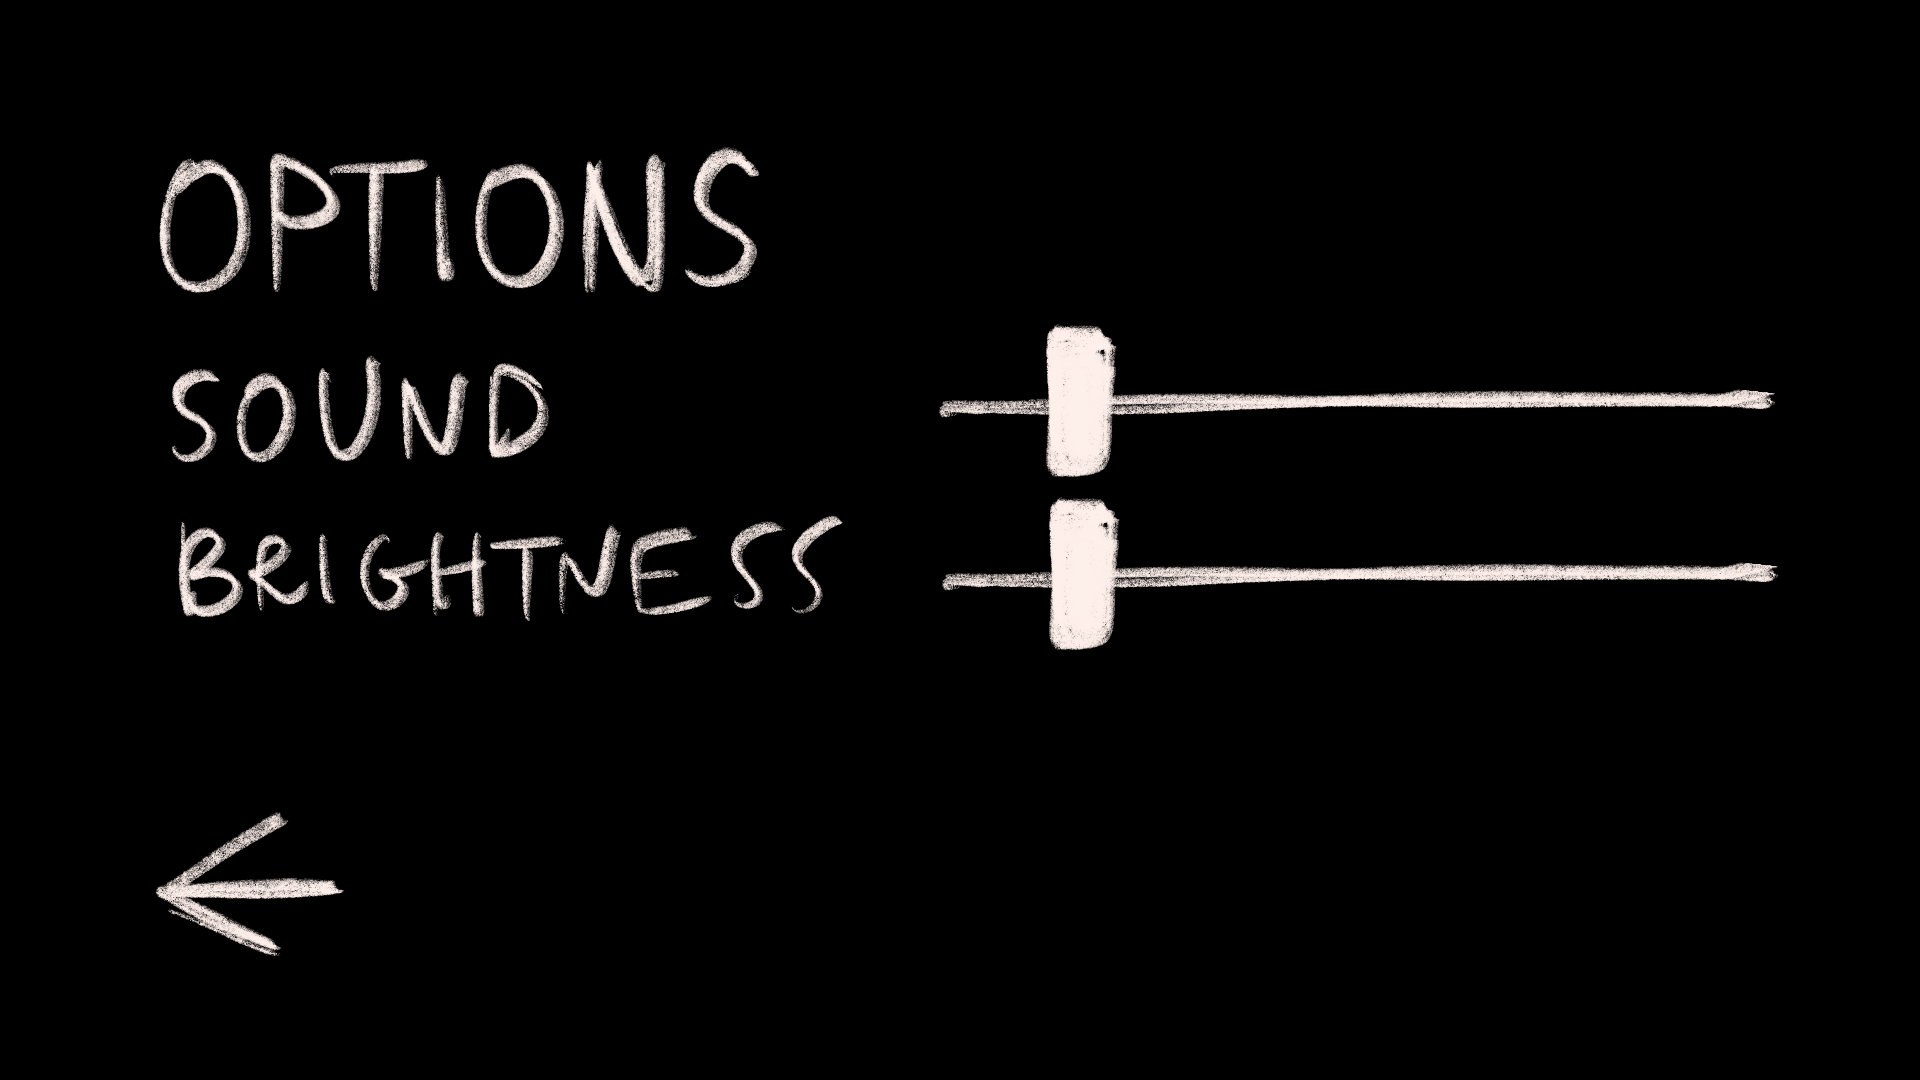 OPTIONS
SOUND
BRIGHTNESS